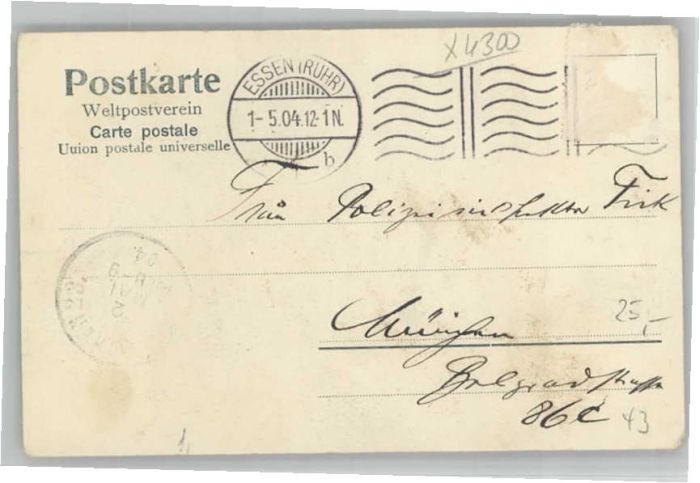 X4300
Postkarte
Weltpostverein
Carte postale
Union postale universelle
ESSEN (RUHR)
1-5.04.12-1N.
b
Frau Polizeiinspektor
München
25,-
Belgradstrasse
86c
43